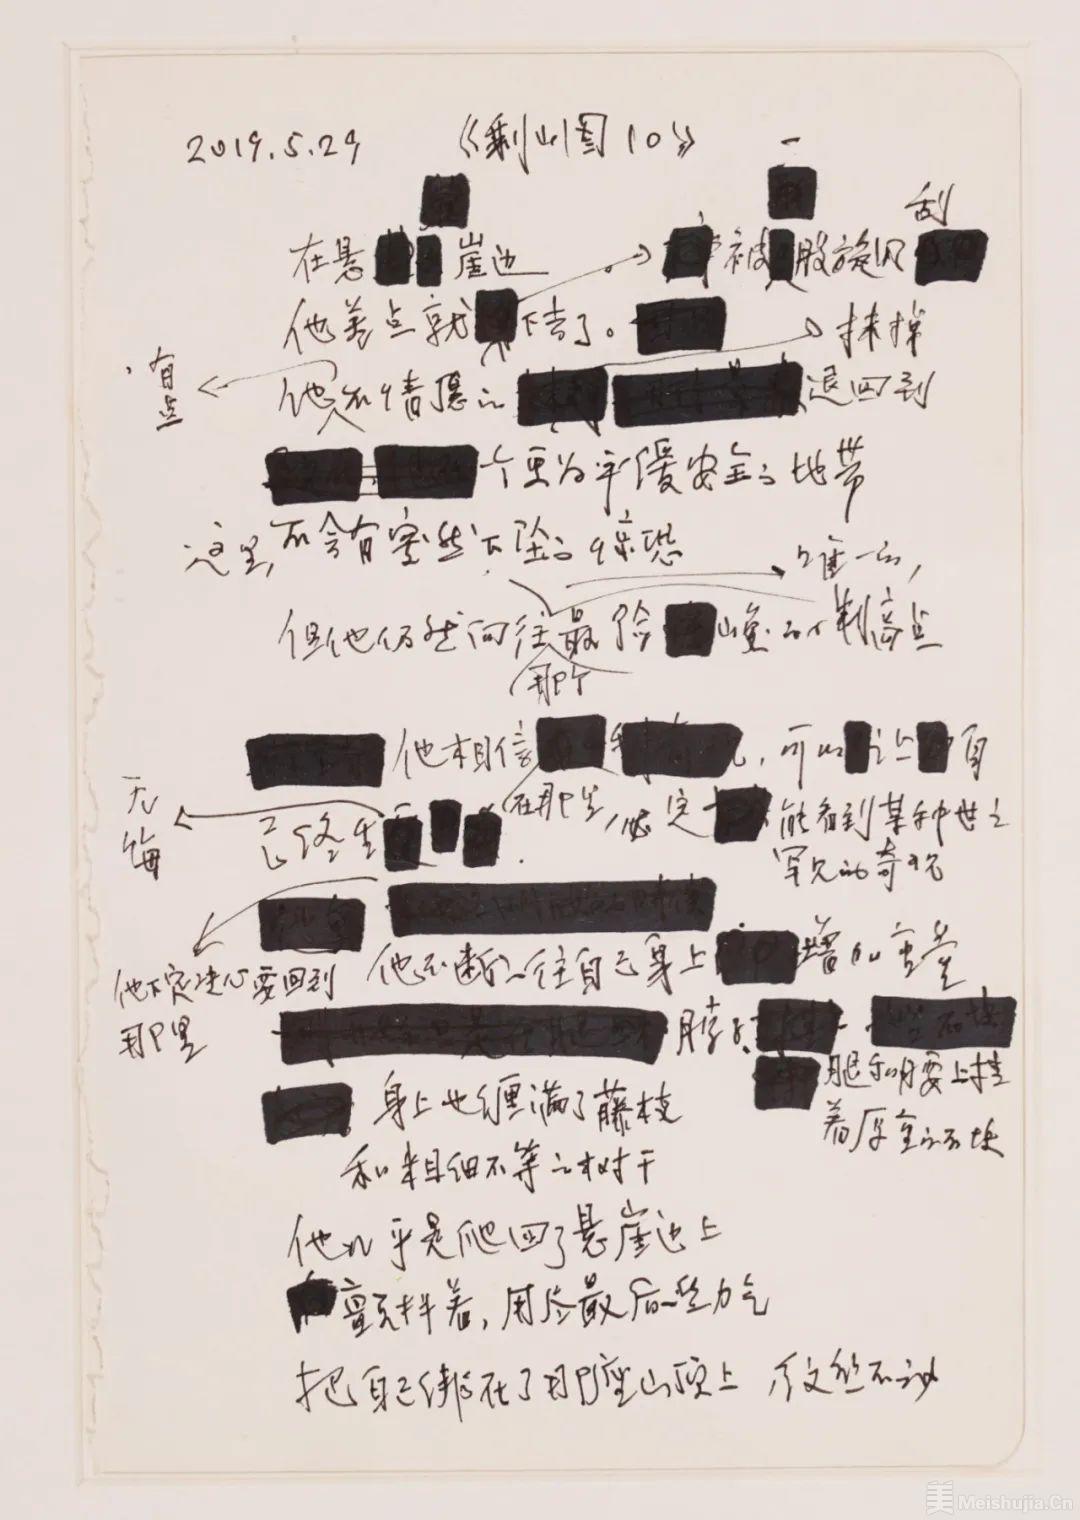 2019.5.29 《剩山图10》
一
刮
在悬崖边 被股旋风
他差点就下去了。
抹掉
有点
他不情愿的退回到
个更为平缓安全的地带
这里,不会有突然下坠的惊恐
唯一的,
但他仍然向往最险峰的制高点
那个
他相信,可以让自
在那里,必定能看到某种世上
罕见的奇观
无悔
己终生
他不断的往自己身上增加重量
他下定决心要回到
那里
脖子
腿和腰上挂
着厚重的石块
身上也缠满了藤枝
和粗细不等的树干
他几乎是爬回了悬崖边上
颤抖着,用尽最后一些力气
把自己绑在了那座山顶上 纹丝不动
美 Meishujia.Cn